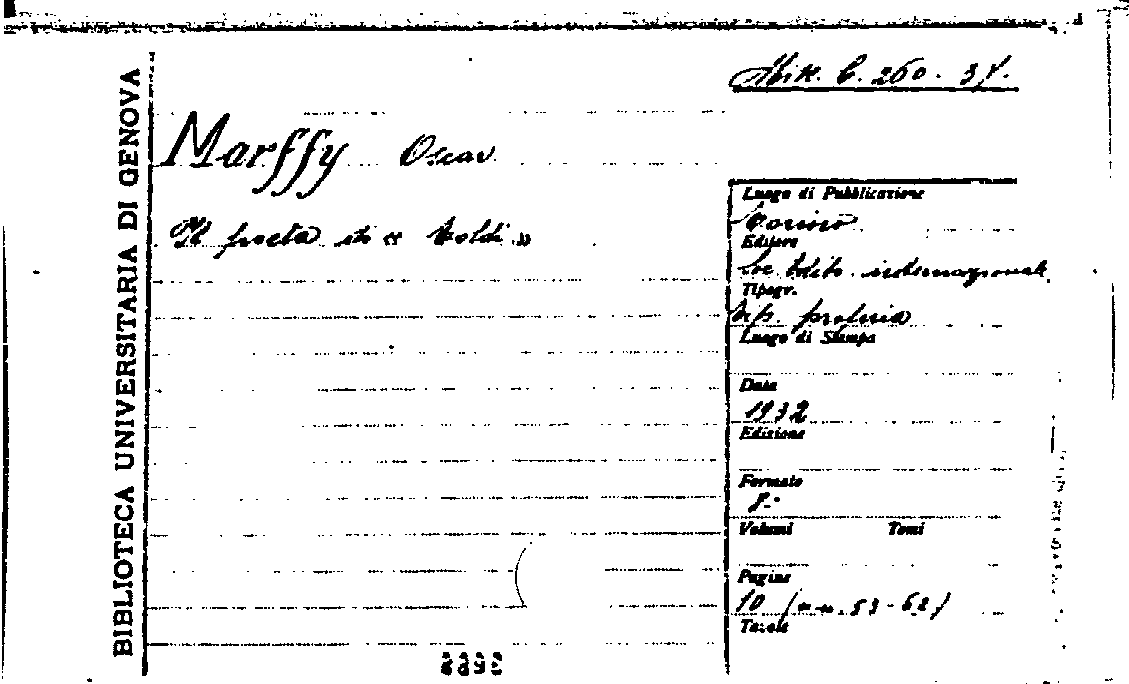 BIBLIOTECA UNIVERSITARIA DI GENOVA
C. 260. 34.
Marffy Oscar
Il poeta di « Toldi »
Luogo di Pubblicazione
Torino
Editore
Soc. Edit. internazionale
Tipogr.
tip. propria
Luogo di Stampa
Data
1932
Edizione
Formato
8.°
Volumi Tomi
Pagine
10 (nn. 53-62)
Tavole